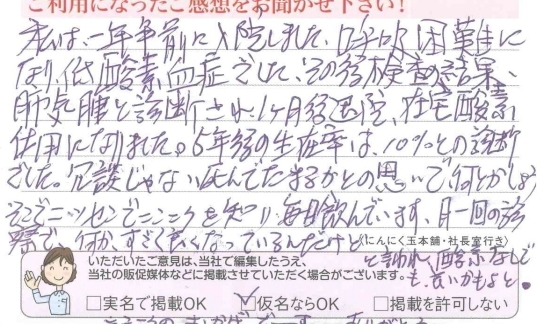 ご利用になったご感想をお聞かせ下さい!
私は、一年半前に入院しました、呼吸困難に
なり、低酸素血症でした、その後検査の結果、
肺気腫と診断され、1ヶ月後退院、在宅酸素
使用になりました。5年後の生存率は、10%との診断
でした。冗談じゃない死んでたまるかとの思いで何とかしよう
そこでニッセンでニンニクを知り毎日飲んでいます、月一回の診
察で、何か、すごく良くなっているんだけど
(にんにく玉本舗・社長室行き)
と言われ、酸素なしで
も、良いかもよと。
いただいたご意見は、当社で編集したうえ、
当社の販促媒体などに掲載させていただく場合がございます。
□実名で掲載OK ☑仮名ならOK □掲載を許可しない